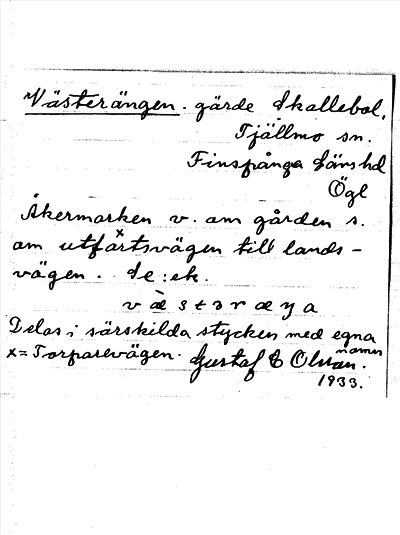 Västerängen. gärde Skallebol,
Tjällmo sn.
Finspånga läns hd
Ögl
Åkermarken v. om gården s.
om utfartsvägen till lands-
vägen. Se: ek.
Delas i särskilda stycken med egna
namn
x = Torparevägen. Gustaf E Olsson.
1933.